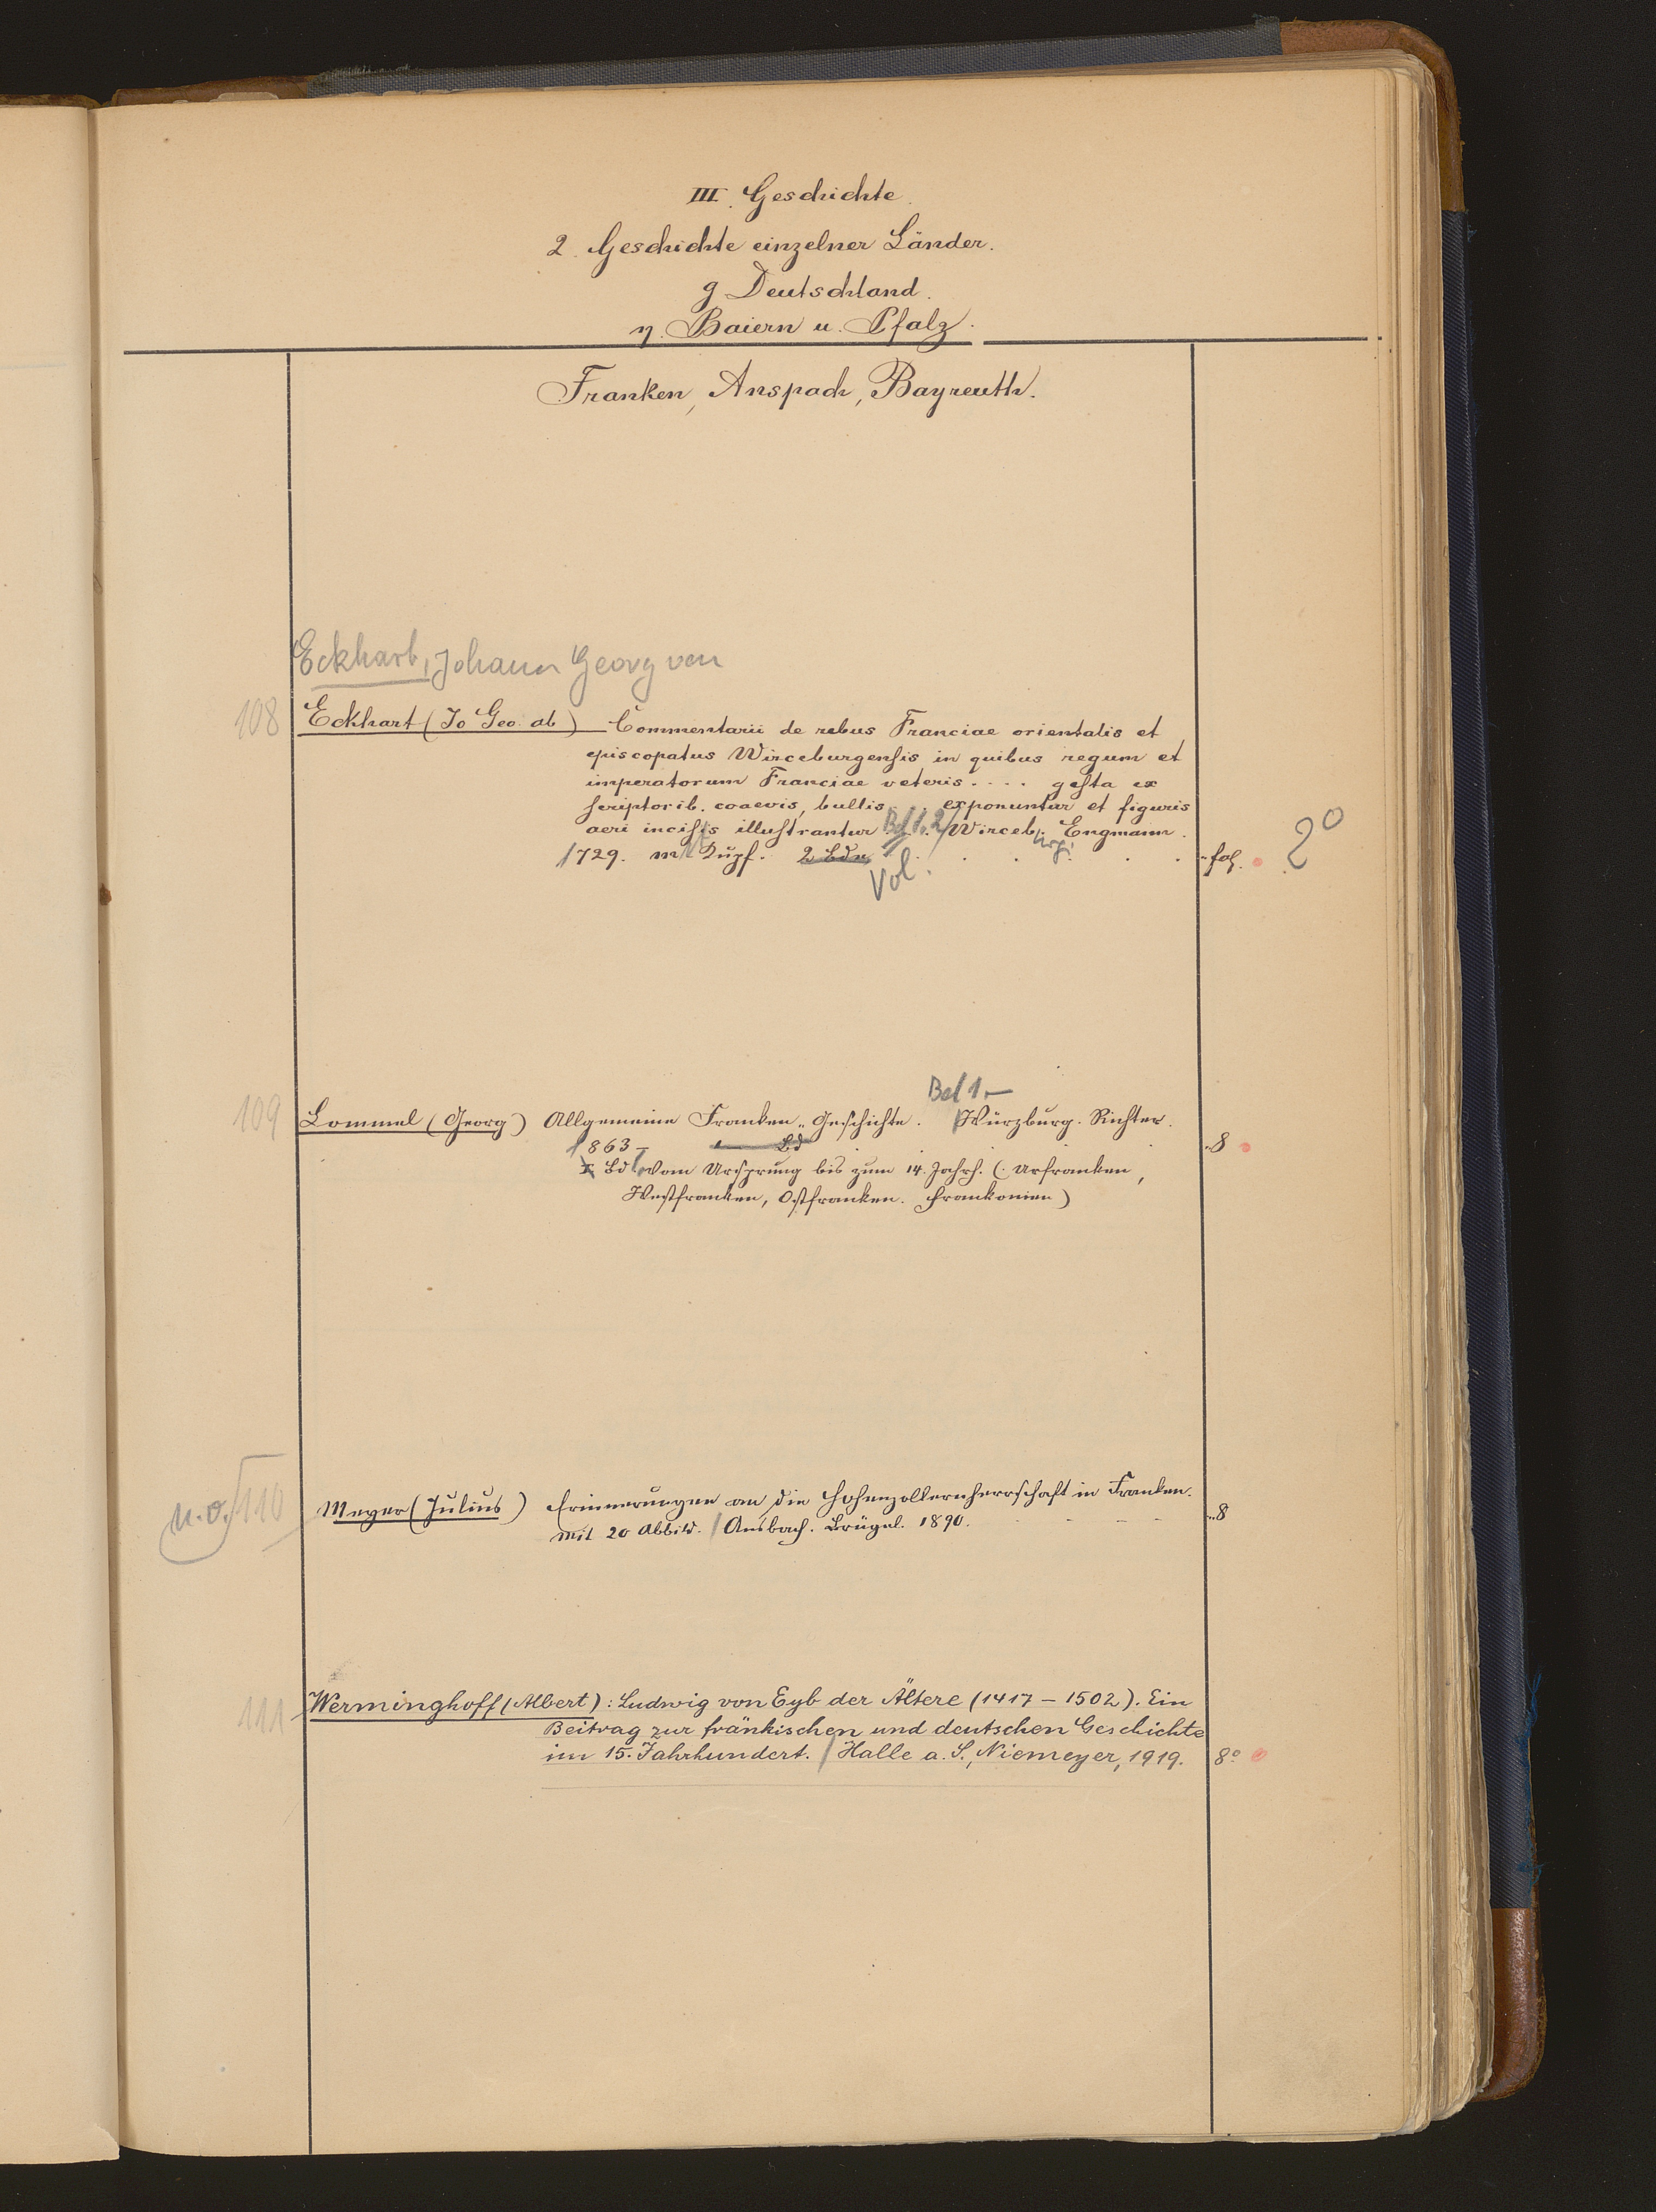 III. Geschichte.
2. Geschichte einzelner Länder.
g Deutschland.
η. Baiern u. Pfalz.
Franken, Anspach, Bayreuth.
Eckhart, Johann Georg von
108 Eckhart (Jo Geo. ab) Commentarii de rebus Franciae orientalis et
episcopatus Wirceburgensis in quibus regum et
imperatorum Franciae veteris .... gesta ex
scriptorib. coaevis, bullis ... exponuntur et figuris
aeri incisis illustrantur. Bd 1. 2 Wirceb. Engmann.
1729. m Kupf. 2 Bde. fol. 2°
Vol.
Bd 1.-
109 Lommel (Georg) Allgemeine Franken-Geschichte. Würzburg. Richter.
1863- Bd 8
I Bd Vom Ursprung bis zum 14. Jahrh. (Urfranken,
Westfranken, Ostfranken. Frankonien)
n. o. 110 Meyer (Julius) Erinnerungen an die Hohenzollernherrschaft in Franken.
Mit 20 Abbild. Ansbach. Brügel. 1890. 8
111 Werminghoff (Albert): Ludwig von Eyb der Ältere (1417-1502). Ein
Beitrag zur fränkischen und deutschen Geschichte
im 15. Jahrhundert. Halle a. S., Niemeyer, 1919. 8°